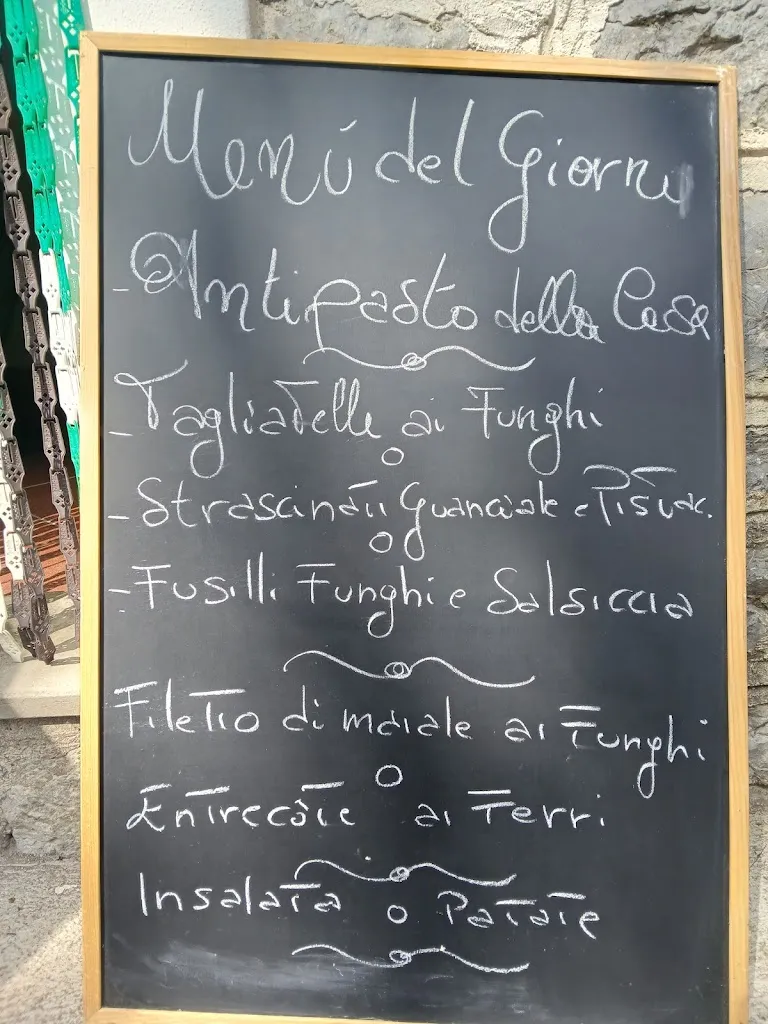 Menú del Giorno
- Antipasto della Casa
- Tagliatelle ai Funghi
o
- Strascinati Guanciale e
o
- Fusilli Funghi e Salsiccia
Filetto di maiale ai Funghi
o
Entrecôte ai Ferri
Insalata o Patate